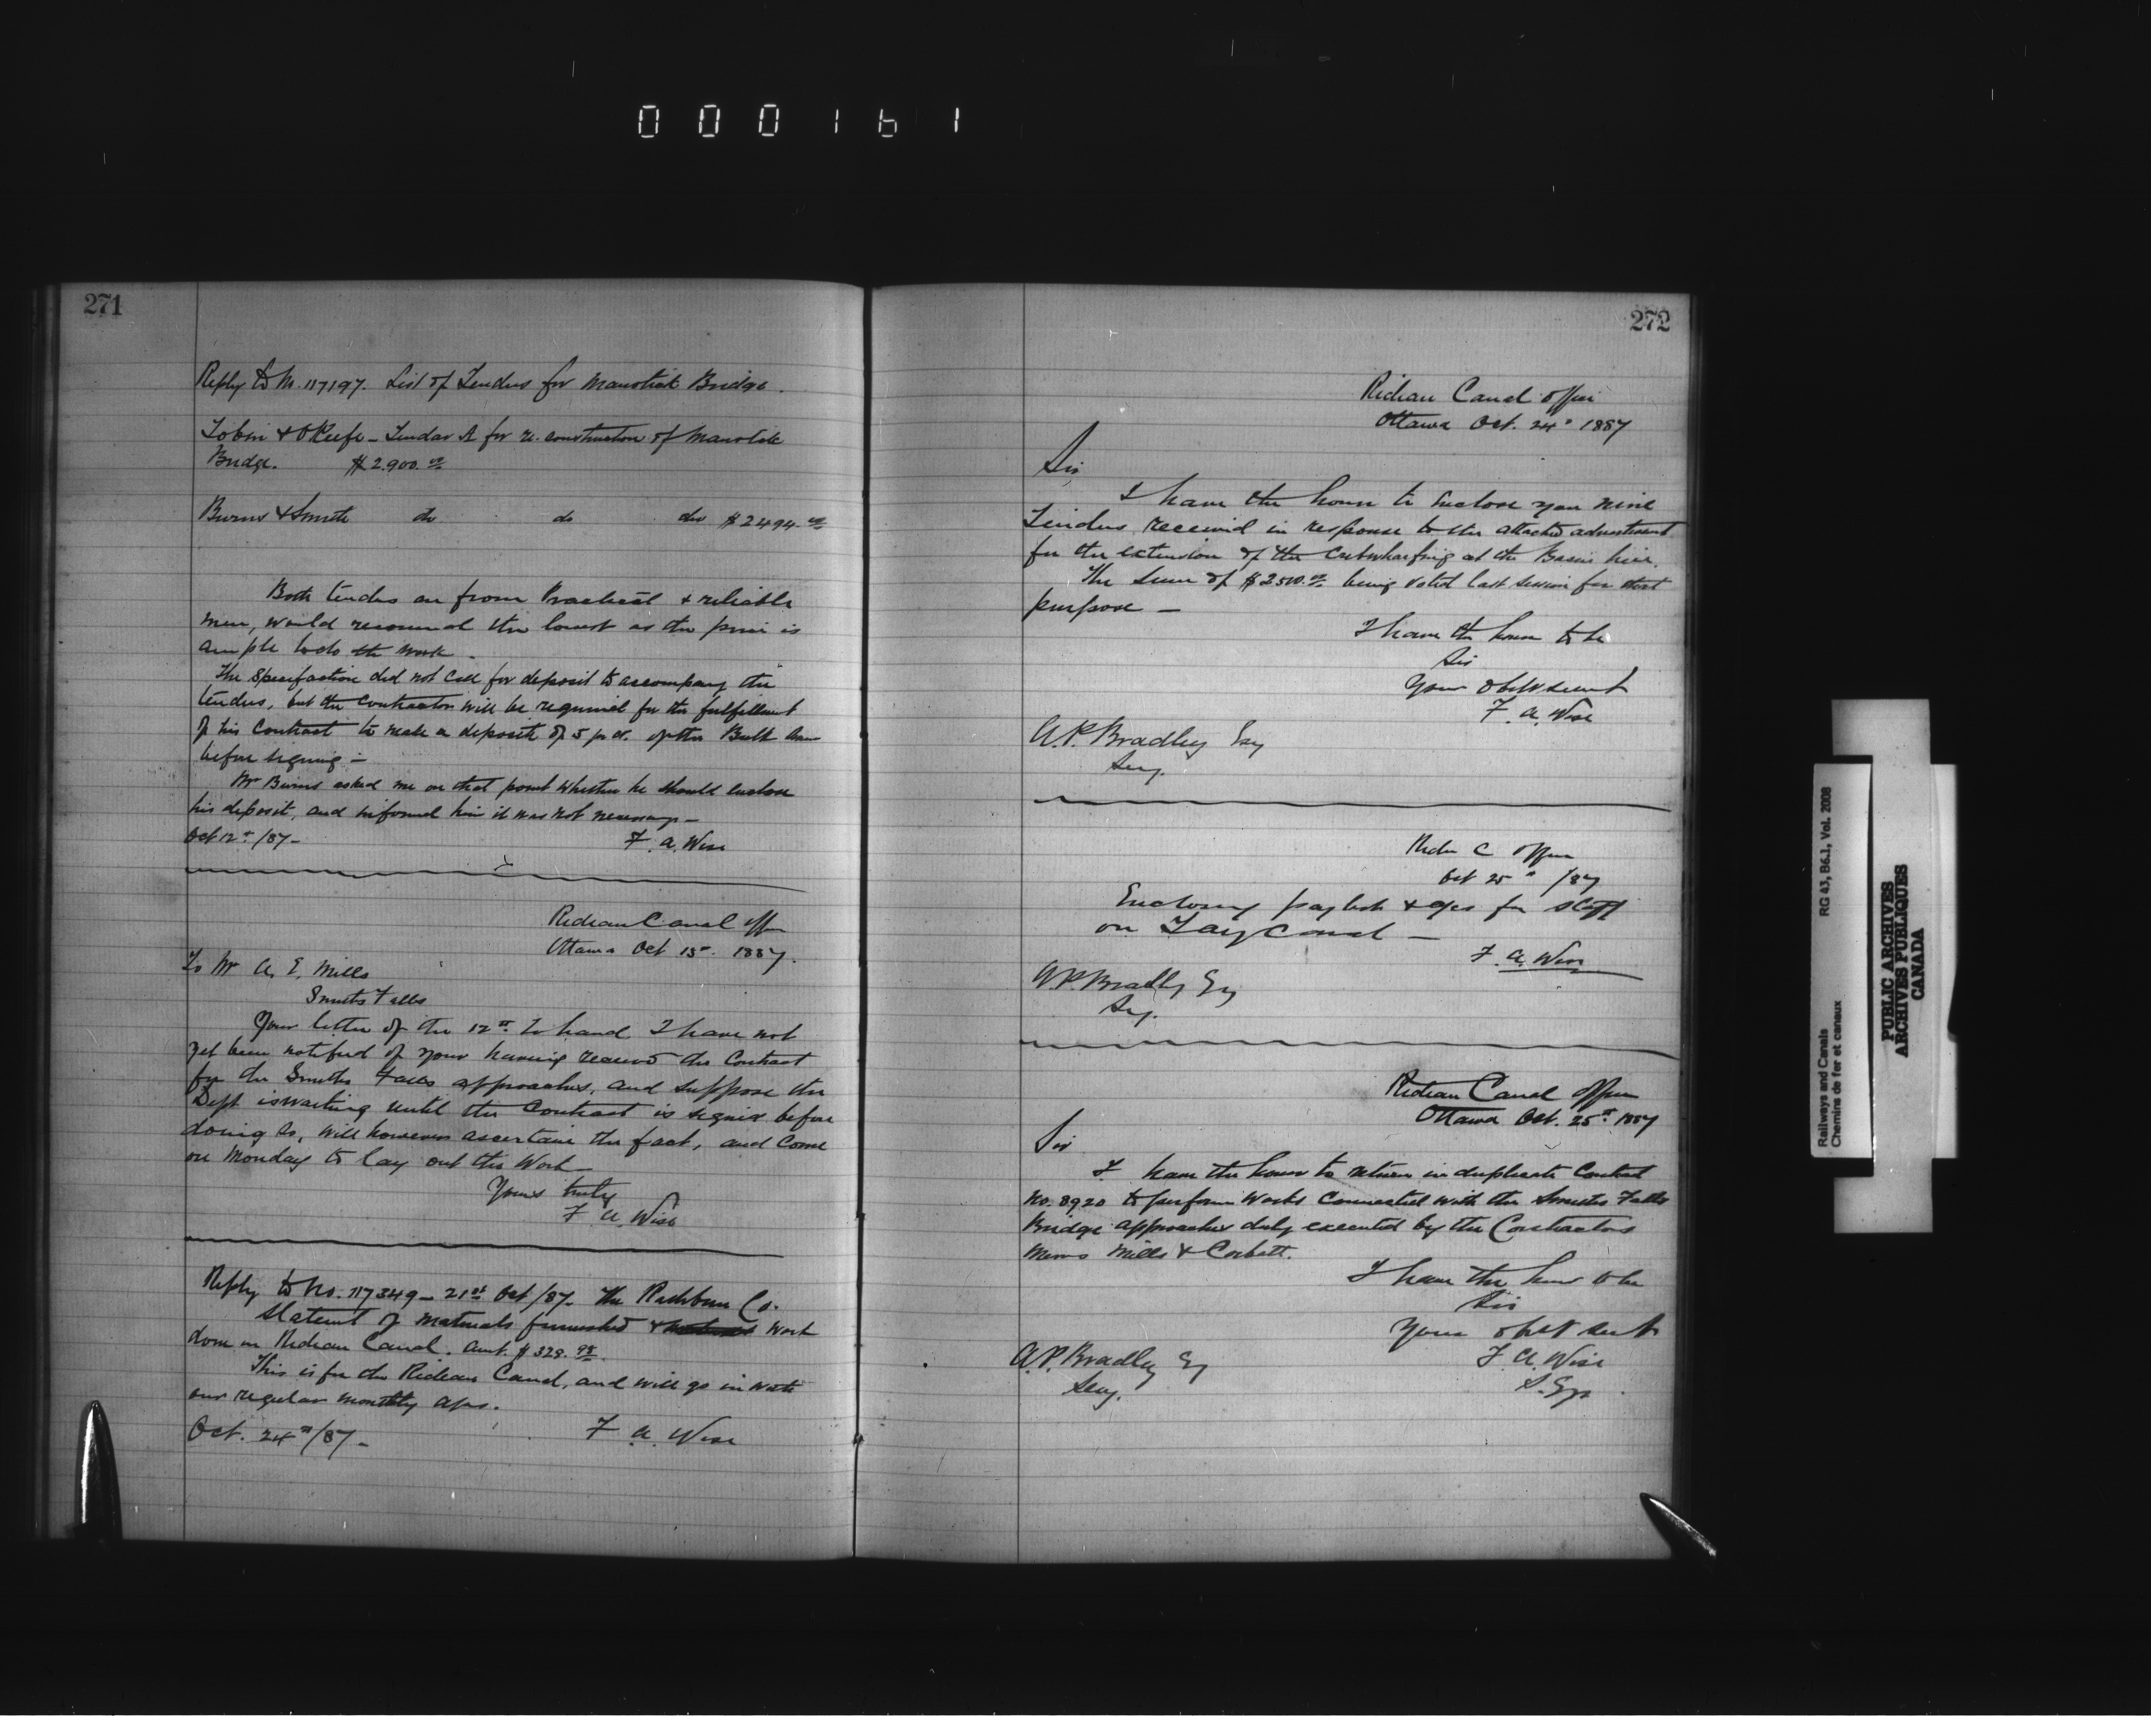 000161
271
Reply to No. 117197. List of Tenders for Manotick Bridge.
Tobin & O'Keefe - Tender A for re-construction of Manotick
Bridge. $2.900.00
Burns & Smith do do do $2494.00
Both tenders are from Practical & reliable
men, would recommend the lowest as the price is
ample to do the work.
The Specifaction did not call for deposit to accompany the
tenders, but the contractor will be required for the fulfillment
of his Contract to make a deposite of 5 pr ct. of the Bulk Sum
before signing -
Mr Burns asked me on that point whether he should enclose
his deposit, and informed him it was not necessary -
Oct 12th/87 - F. A. Wise
Rideau Canal Office
Ottawa Oct 15th. 1887.
To Mr A. E. Mills
Smiths Falls
Your letter of the 12th to hand. I have not
yet been notified of your having received the Contract
for the Smiths Falls approaches, and suppose the
Dept is waiting until the Contract is signed before
doing so, will however ascertain the fact, and come
on Monday to lay out the Work -
Yours truly
F A. Wise
Reply to No. 117349 - 21st Oct/87. The Rathbun Co.
Statemt of materials furnished & work
done on Rideau Canal. Amt. $329.98
This is for the Rideau Canal, and will go in with
our regular monthly a/cs.
Oct. 24th/87 - F A. Wise
272
Rideau Canal Office
Ottawa Oct. 24th 1887
Sir
I have the honor to Enclose you nine
Tenders received in response to the attached advertisement
for the extension of the Cribwharfing at the Basin here.
The Sum of $2500.00 being voted last session for that
purpose -
I have the honor to be
Sir
Your obt servant
F. A. Wise
A. P. Bradley Esq
Secy.
Rideau C Office
Oct 25th /87
Enclosing paylist & a/cs for staff
on Tay Canal -
F. A. Wise
A. P. Bradley Esq
Secy.
Rideau Canal Office
Ottawa Oct. 25th 1887
Sir
I have the honor to return in duplicate Contract
No. 8920 to perform Works Connected with the Smiths Falls
Bridge approaches duly executed by the Contractors
Messrs Mills & Corbett.
I have the honor to be
Sir
Your obt Servt
F. A. Wise
S. Eng
A. P. Bradley Esq
Secy.
Railways and Canals RG 43, B6.1, Vol. 2008
Chemins de fer et canaux
PUBLIC ARCHIVES
ARCHIVES PUBLIQUES
CANADA